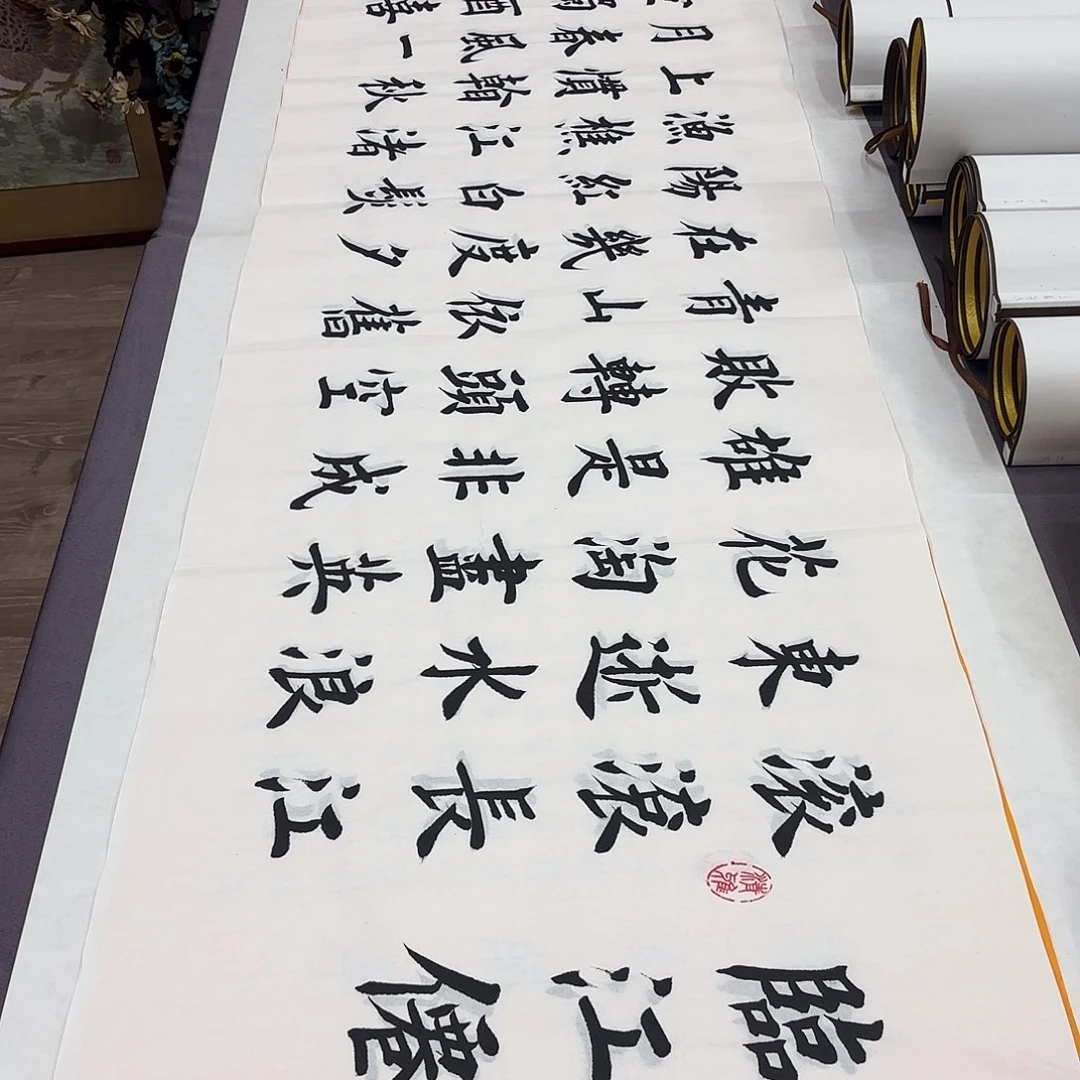 臨江僊
滾滾長江
東逝水浪
花淘盡英
雄是非成
敗轉頭空
青山依舊
在幾度夕
陽紅白髮
漁樵江渚
上慣看秋
月春風一
濁酒喜